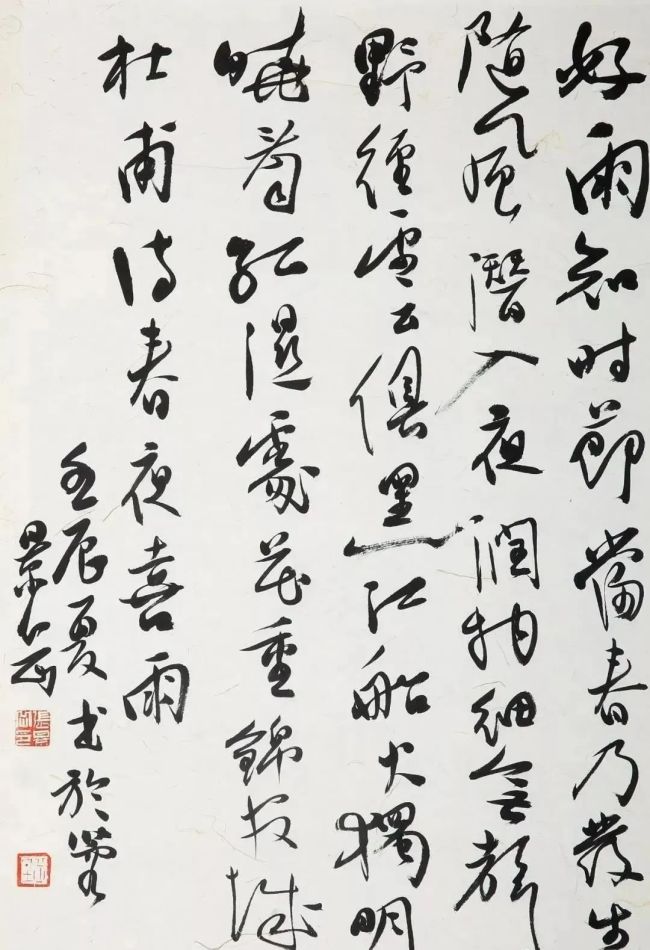 好雨知时節當春乃發生
随風潛入夜潤物細無聲
野徑雲俱黑江船火獨明
曉看紅濕處花重錦官城
杜甫诗春夜喜雨
壬辰夏书於
景